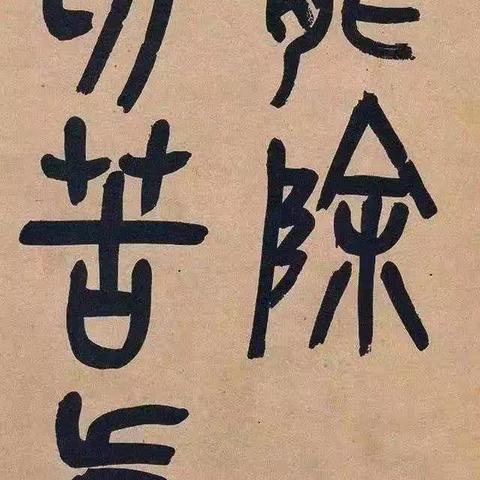 能除
切苦真